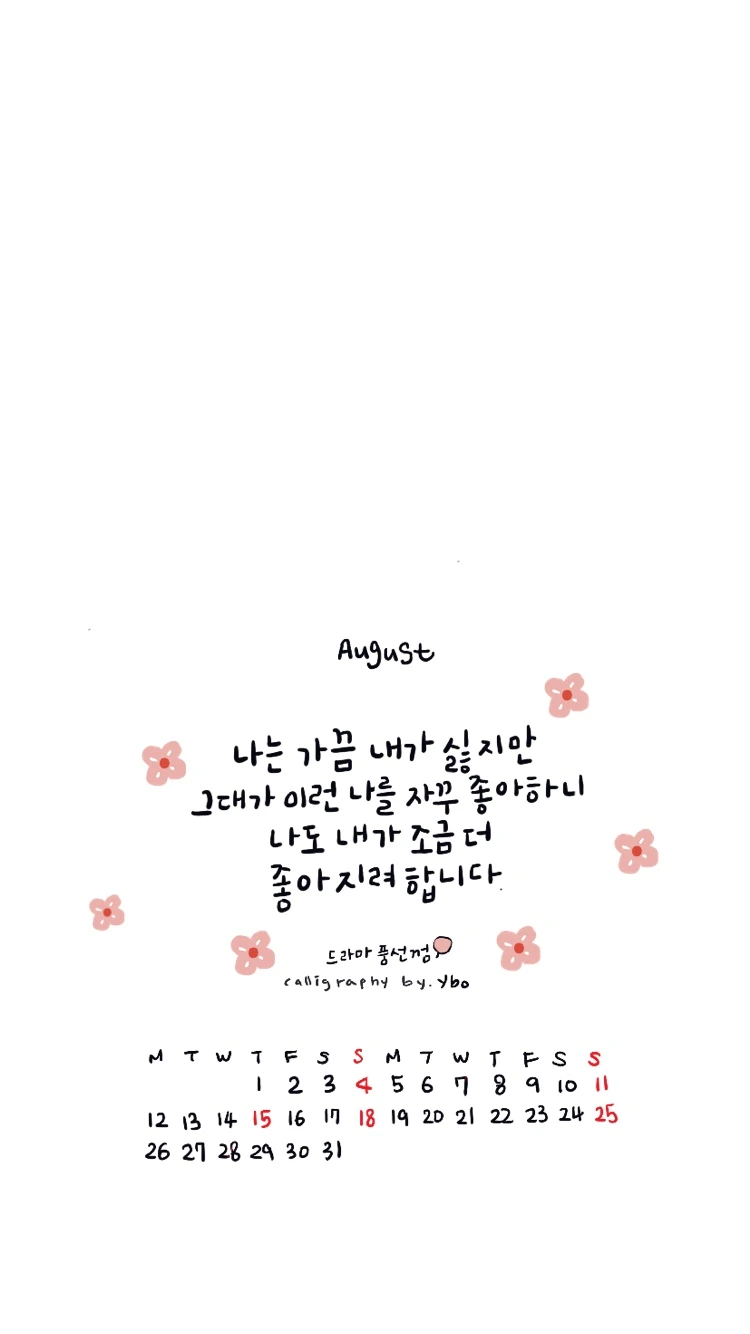 August
나는 가끔 내가 싫지만
그대가 이런 나를 자꾸 좋아하니
나도 내가 조금 더
좋아지려 합니다.
드라마 풍선껌
calligraphy by. ybo
M T W T F S S M T W T F S S
1 2 3 4 5 6 7 8 9 10 11
12 13 14 15 16 17 18 19 20 21 22 23 24 25
26 27 28 29 30 31